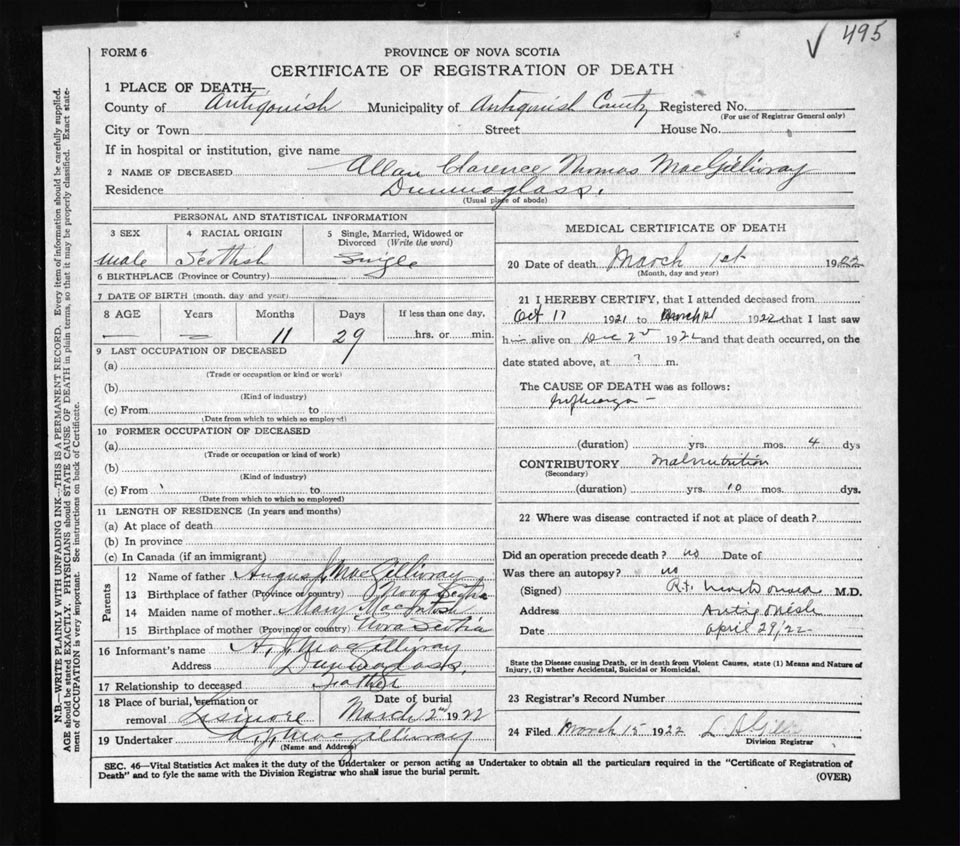 ✓ 495
FORM 6
PROVINCE OF NOVA SCOTIA
CERTIFICATE OF REGISTRATION OF DEATH
1 PLACE OF DEATH—
County of Antigonish Municipality of Antigonish County Registered No.
(For use of Registrar General only)
City or Town Street House No.
If in hospital or institution, give name
2 NAME OF DECEASED Allan Clarence Thomas MacGillivray
Residence Dunmaglass.
(Usual place of abode)
PERSONAL AND STATISTICAL INFORMATION
3 SEX 4 RACIAL ORIGIN 5 Single, Married, Widowed or Divorced (Write the word)
Male Scottish Single
6 BIRTHPLACE (Province or Country)
7 DATE OF BIRTH (month, day and year)
8 AGE Years Months Days If less than one day,
— — 11 29 hrs. or min.
9 LAST OCCUPATION OF DECEASED
(a)
(Trade or occupation or kind or work)
(b)
(Kind of industry)
(c) From to
(Date from which to which so employed)
10 FORMER OCCUPATION OF DECEASED
(a)
(Trade or occupation or kind of work)
(b)
(Kind of industry)
(c) From to
(Date from which to which so employed)
11 LENGTH OF RESIDENCE (In years and months)
(a) At place of death
(b) In province
(c) In Canada (if an immigrant)
Parents
12 Name of father Angus J. MacGillivray
13 Birthplace of father (Province or country) Nova Scotia
14 Maiden name of mother Mary MacIntosh
15 Birthplace of mother (Province or country) Nova Scotia
16 Informant's name A. J. MacGillivray
Address Dunmaglass.
17 Relationship to deceased Father
18 Place of burial, cremation or removal Lismore Date of burial March 2nd 1922
19 Undertaker A. J. MacGillivray
(Name and Address)
MEDICAL CERTIFICATE OF DEATH
20 Date of death March 1st 1922
(Month, day and year)
21 I HEREBY CERTIFY, that I attended deceased from
Oct 17 1921 to March 1st 1922 that I last saw
h alive on Dec 2nd 192 and that death occurred, on the
date stated above, at ? m.
The CAUSE OF DEATH was as follows:
Influenza —
(duration) yrs. mos. 4 dys
CONTRIBUTORY Malnutrition
(Secondary)
(duration) yrs. 10 mos. dys.
22 Where was disease contracted if not at place of death?
Did an operation precede death? no Date of
Was there an autopsy? no
(Signed) M.D.
Address Antigonish
Date April 29/22
State the Disease causing Death, or in death from Violent Causes, state (1) Means and Nature of
Injury, (2) whether Accidental, Suicidal or Homicidal.
23 Registrar's Record Number
24 Filed March 15 1922 L D Gillis
Division Registrar
SEC. 46—Vital Statistics Act makes it the duty of the Undertaker or person acting as Undertaker to obtain all the particulars required in the "Certificate of Registration of
Death" and to fyle the same with the Division Registrar who shall issue the burial permit.
(OVER)
N.B.—WRITE PLAINLY WITH UNFADING INK—THIS IS A PERMANENT RECORD. Every item of information should be carefully supplied.
AGE should be stated EXACTLY. PHYSICIANS should STATE CAUSE OF DEATH in plain terms, so that it may be properly classified. Exact state-
ment of OCCUPATION is very important. See instructions on back of Certificate.